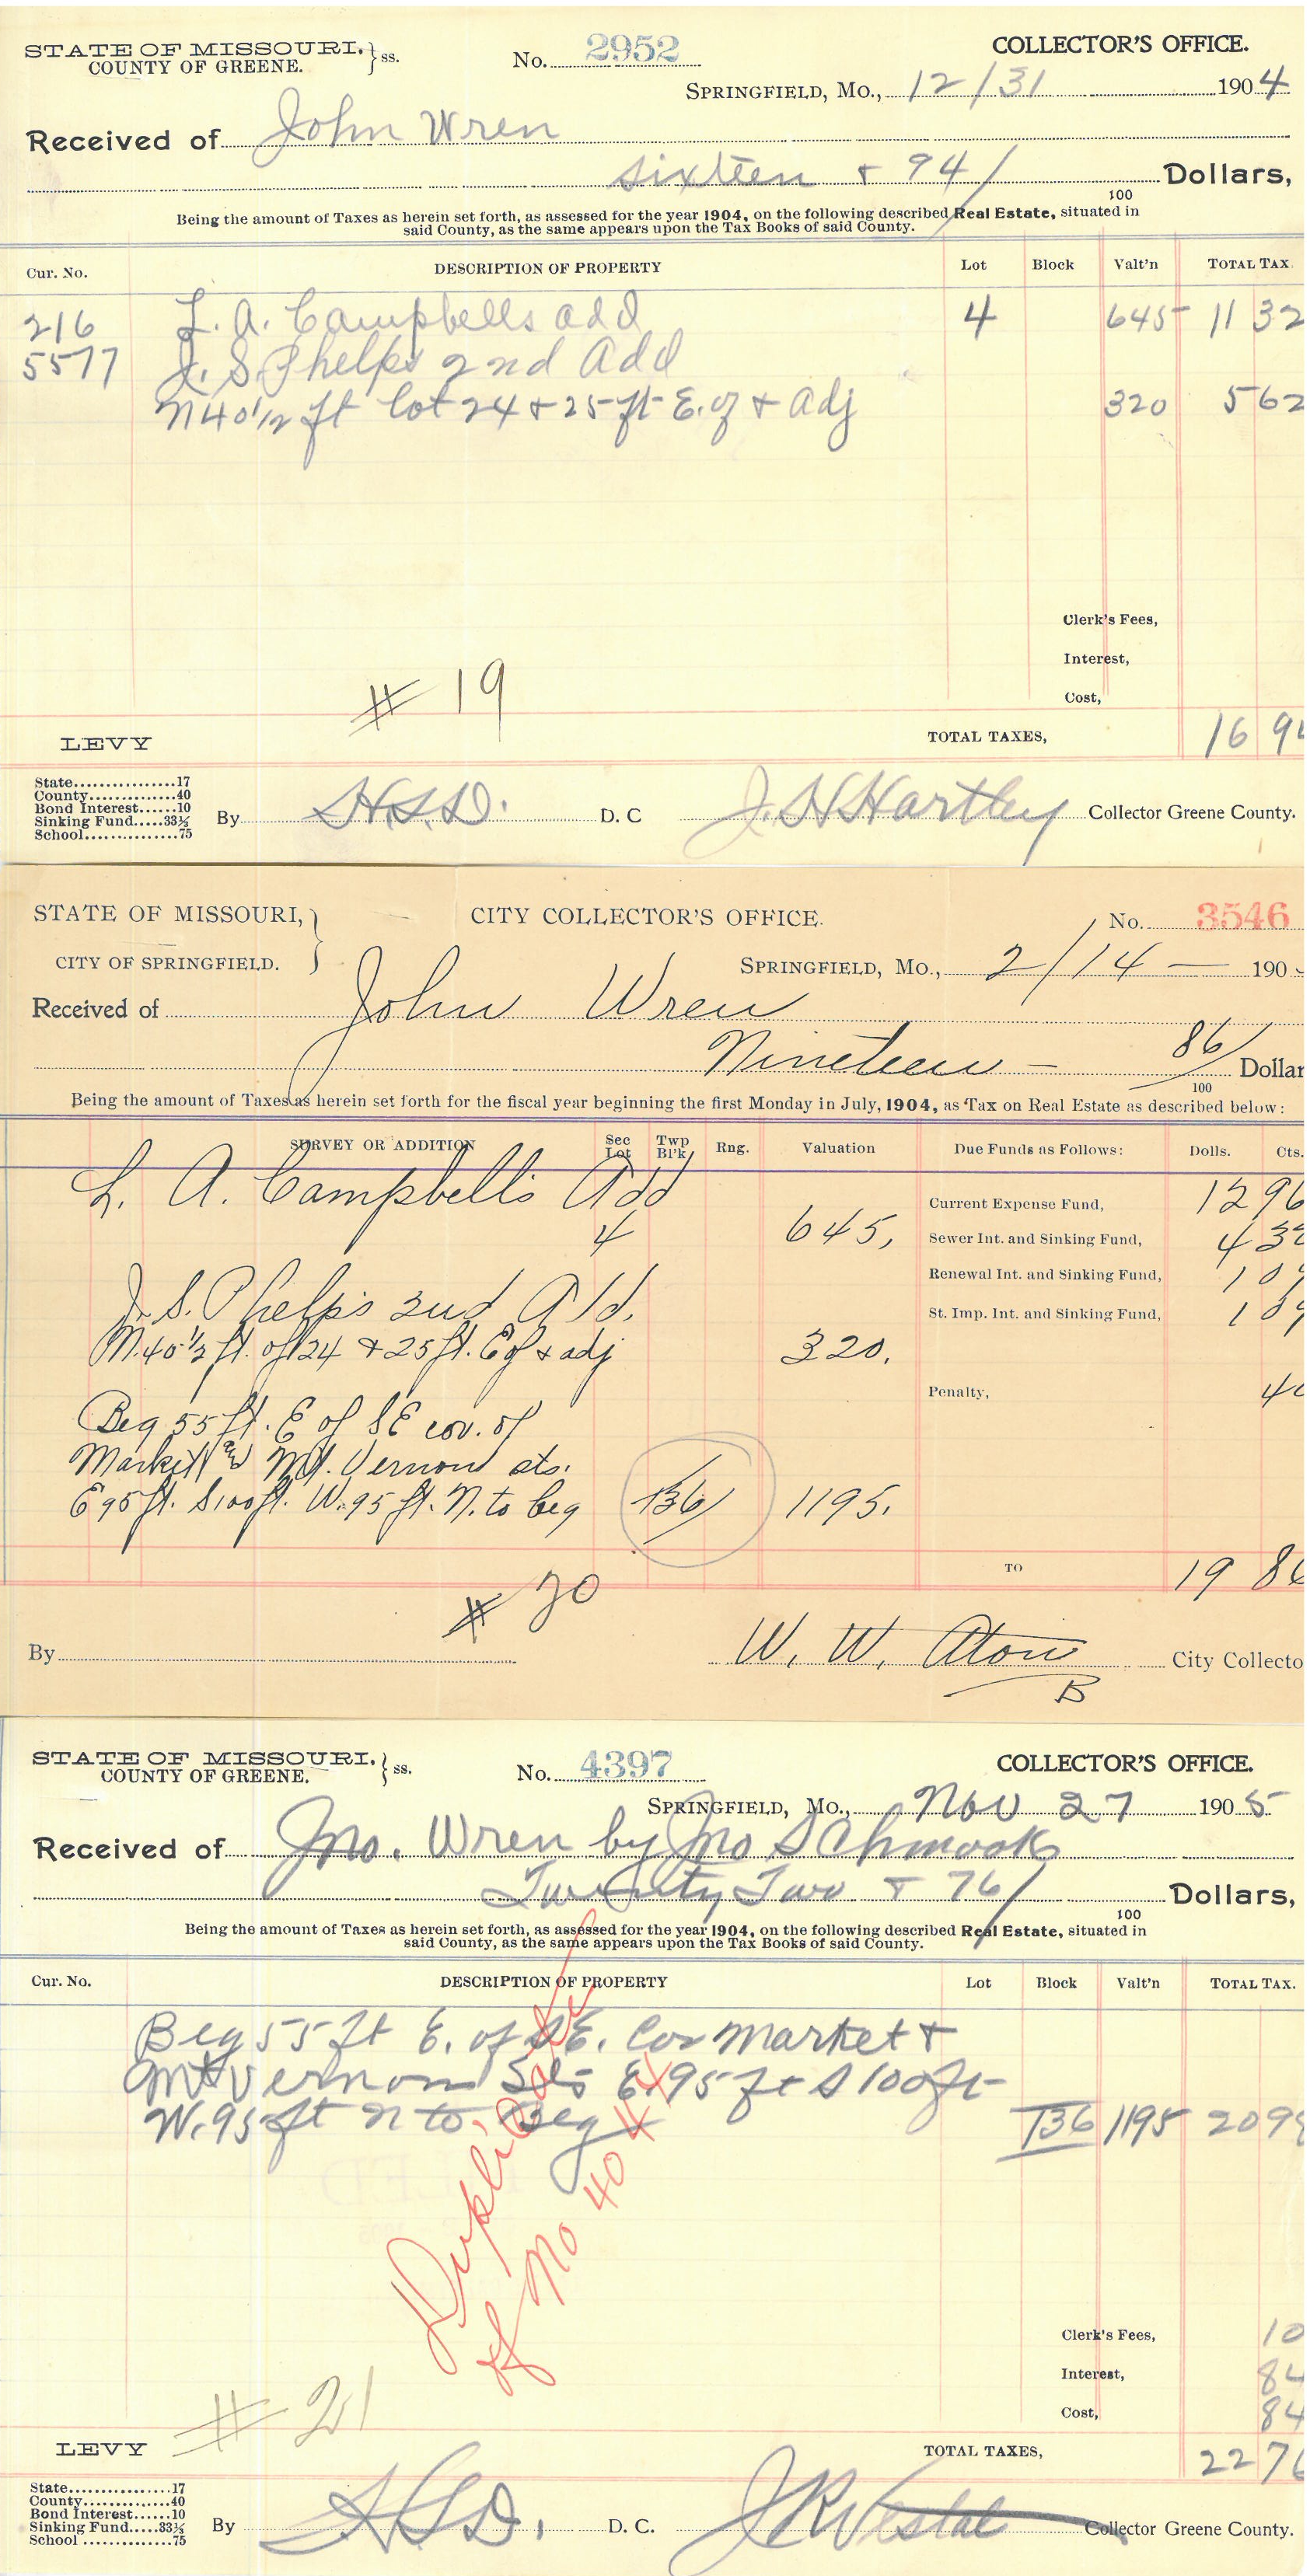 STATE OF MISSOURI, } ss. No. 2952 COLLECTOR'S OFFICE.
COUNTY OF GREENE.
SPRINGFIELD, MO., 12/31 1904
Received of John Wren
sixteen & 94/100 Dollars,
Being the amount of Taxes as herein set forth, as assessed for the year 1904, on the following described Real Estate, situated in
said County, as the same appears upon the Tax Books of said County.
Cur. No. DESCRIPTION OF PROPERTY Lot Block Valt'n TOTAL TAX
216 L. A. Campbells add 4 645 11 32
5577 J. S. Phelps 2nd Add
N 40 1/2 ft lot 24 & 25 ft E. of & adj 320 5 62
Clerk's Fees,
Interest,
# 19
Cost,
LEVY TOTAL TAXES, 16 94
State 17
County 40
Bond Interest 10
Sinking Fund 33⅓
School 75
By H.S.D. D. C J. H Hartley Collector Greene County.
STATE OF MISSOURI, } CITY COLLECTOR'S OFFICE. No. 3546
CITY OF SPRINGFIELD. SPRINGFIELD, MO., 2/14 — 190
Received of John Wren
Nineteen — 86/100 Dollar
Being the amount of Taxes as herein set forth for the fiscal year beginning the first Monday in July, 1904, as Tax on Real Estate as described below:
SURVEY OR ADDITION Sec Lot Twp Bl'k Rng. Valuation Due Funds as Follows: Dolls. Cts.
L. A. Campbell's Add Current Expense Fund, 12 96
4 645, Sewer Int. and Sinking Fund, 4 32
Renewal Int. and Sinking Fund, 1 09
J. S. Phelp's 2nd Add. St. Imp. Int. and Sinking Fund, 1 09
N. 40 1/2 ft. of 24 & 25 ft. E of & adj 320.
Penalty, 40
Beg 55 ft. E of SE cor. of
Market & Mt. Vernon sts.
E 95 ft. S 100 ft. W. 95 ft. N. to beg T36 1195.
TO 19 86
# 20
By W. W. Aton City Collecto
B
STATE OF MISSOURI, } ss. No. 4397 COLLECTOR'S OFFICE.
COUNTY OF GREENE.
SPRINGFIELD, MO., Nov 27 1905
Received of Jno. Wren by Jno Schmook
Twenty Two & 76/100 Dollars,
Being the amount of Taxes as herein set forth, as assessed for the year 1904, on the following described Real Estate, situated in
said County, as the same appears upon the Tax Books of said County.
Cur. No. DESCRIPTION OF PROPERTY Lot Block Valt'n TOTAL TAX.
Beg 55 ft E. of SE. Cor Market &
Mt Vernon Sts E 95 ft S 100 ft
W. 95 ft N to Beg T36 1195 20 98
Duplicate
of No 4044
Clerk's Fees, 10
Interest, 84
# 21
Cost, 84
LEVY TOTAL TAXES, 22 76
State 17
County 40
Bond Interest 10
Sinking Fund 33⅓
School 75
By H S D. D. C. Collector Greene County.